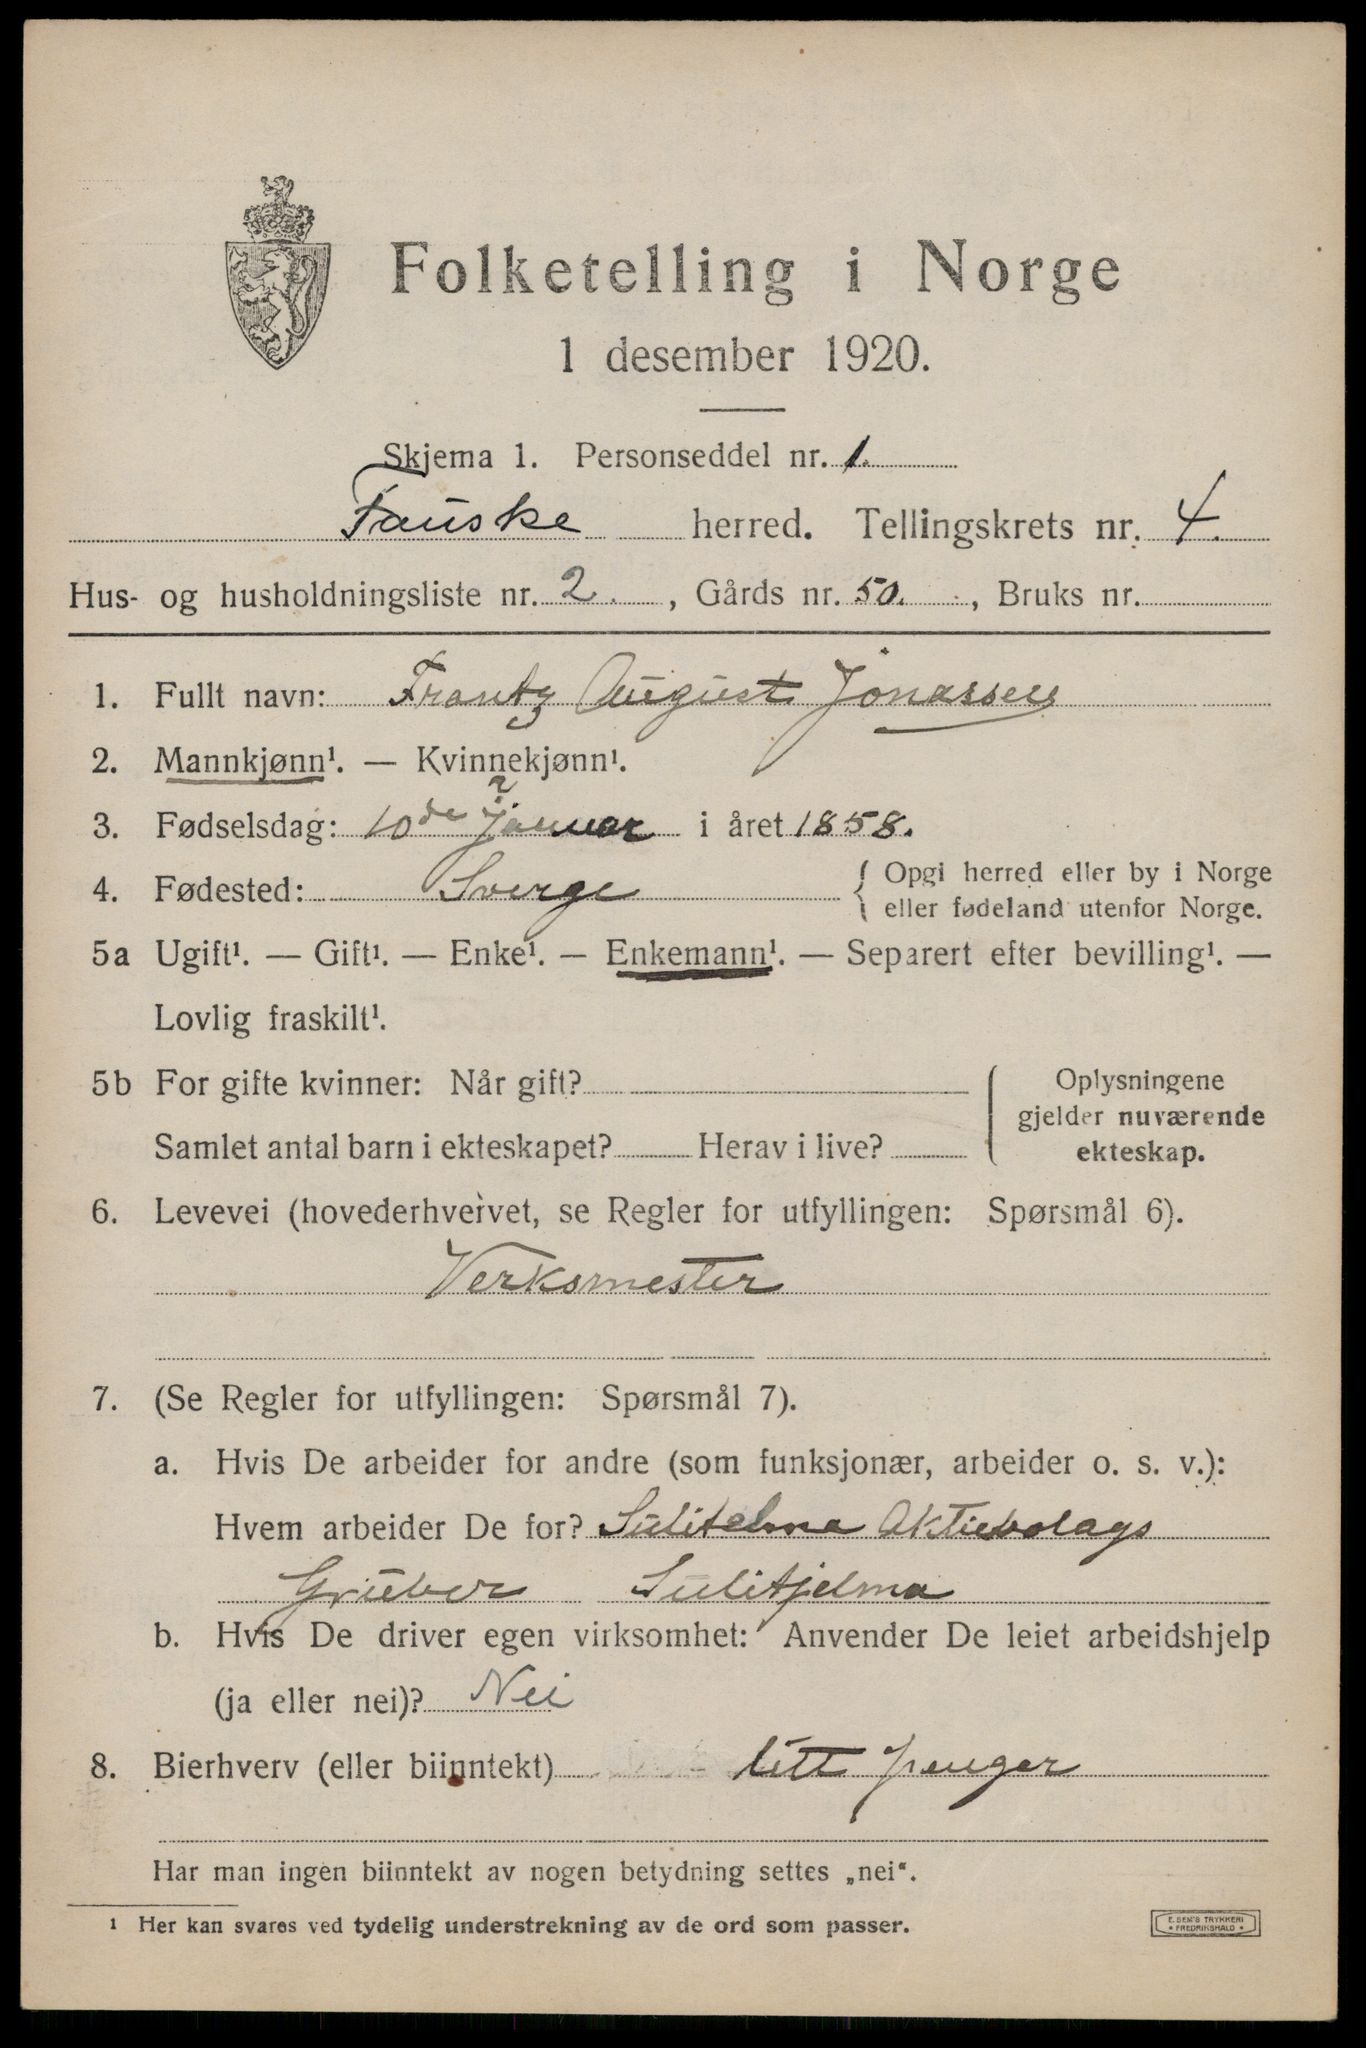 Folketelling i Norge
1 desember 1920.
Skjema 1. Personseddel nr. 1.
Fauske herred. Tellingskrets nr. 4.
Hus- og husholdningsliste nr. 2. , Gårds nr. 50. , Bruks nr.
1. Fullt navn: Frantz August Jonassen
2. Mannkjønn¹. — Kvinnekjønn¹.
3. Fødselsdag: 10de januar i året 1858.
4. Fødested: Sverge { Opgi herred eller by i Norge
eller fødeland utenfor Norge.
5a Ugift¹. — Gift¹. — Enke¹. — Enkemann¹. — Separert efter bevilling¹. —
Lovlig fraskilt¹.
5b For gifte kvinner: Når gift? Oplysningene
gjelder nuværende
Samlet antal barn i ekteskapet? Herav i live? ekteskap.
6. Levevei (hovederhvervet, se Regler for utfyllingen: Spørsmål 6).
Verksmester
7. (Se Regler for utfyllingen: Spørsmål 7).
a. Hvis De arbeider for andre (som funksjonær, arbeider o. s. v.):
Hvem arbeider De for? Sulitelma Aktiebolags
Gruber Sulitjelma
b. Hvis De driver egen virksomhet: Anvender De leiet arbeidshjelp
(ja eller nei)? Nei
8. Bierhverv (eller biinntekt) litt penger
Har man ingen biinntekt av nogen betydning settes „nei“.
¹ Her kan svares ved tydelig understrekning av de ord som passer.
E. SEM'S TRYKKERI
• FREDRIKSHALD •